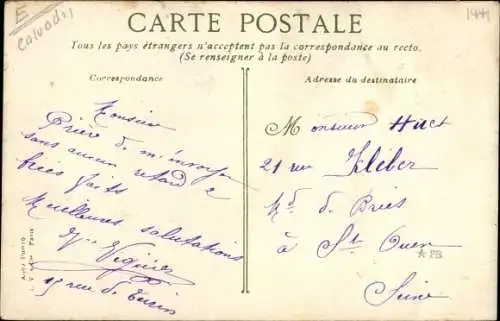 E
Calvados
1441
CARTE POSTALE
Tous les pays étrangers n'acceptent pas la correspondance au recto.
(Se renseigner à la poste)
Correspondance
Monsieur
Prière de m'envoyer
sans aucun retard 2
bries faits
Meilleures salutations
Mme
15 rue de Turin
Adresse du destinataire
Monsieur Huet
21 rue Kléber
Md. de Bries
à St. Ouen
Seine
PARIS